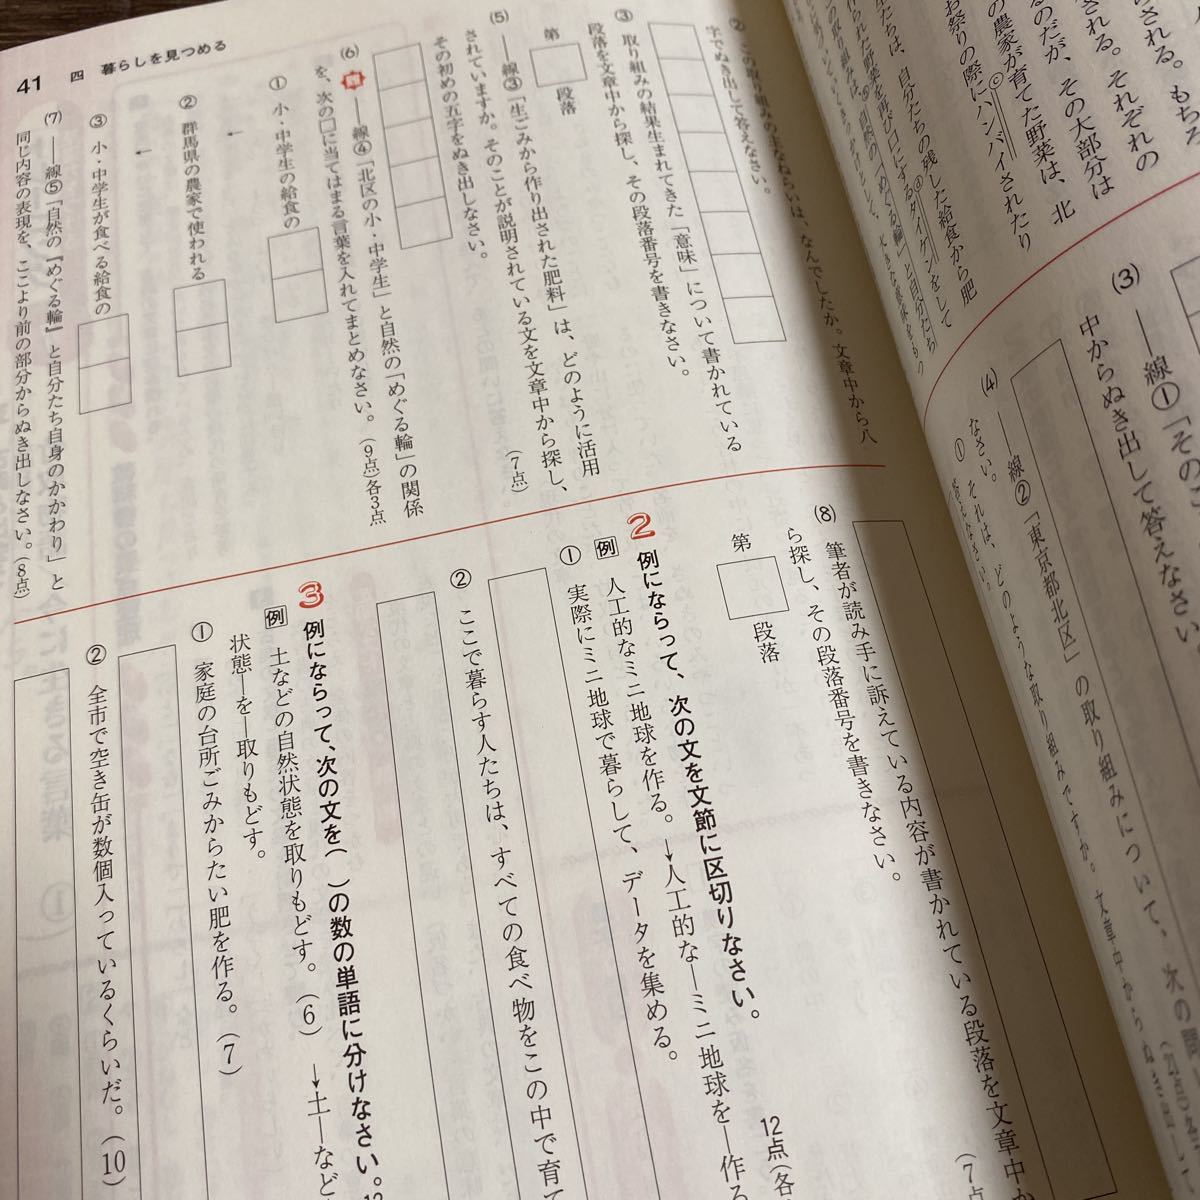 される。もちろ
される。それぞれの
るのだが、その大部分は
の農家が育てた野菜は、北
お祭りの際にⓒハンバイされたり
生たちは、自分たちの残した給食から肥
(3) ――線①「その
中からぬき出して答えなさい。
(4) ――線②「東京都北区」の取り組みについて、次の問
なさい。
① それは、どのような取り組みですか。文章中から
答えなさい。
② この取り組みの主なねらいは、なんでしたか。文章中から八
字でぬき出して答えなさい。
③ 取り組みの結果生まれてきた「意味」について書かれている
段落を文章中から探し、その段落番号を書きなさい。
第 段落
(5) ――線③「生ごみから作り出された肥料」は、どのように活用
されていますか。そのことが説明されている文を文章中から探し、
その初めの五字をぬき出しなさい。(7点)
(6) ――線④「北区の小・中学生」と自然の「めぐる輪」の関係
を、次の□に当てはまる言葉を入れてまとめなさい。(9点)各3点
① 小・中学生の給食の
↓
② 群馬県の農家で使われる
↓
③ 小・中学生が食べる給食の
(7) ――線⑤「自然の『めぐる輪』と自分たち自身のかかわり」と
同じ内容の表現を、ここより前の部分からぬき出しなさい。(8点)
(8) 筆者が読み手に訴えている内容が書かれている段落を文章中か
ら探し、その段落番号を書きなさい。(7点
第 段落
2 例にならって、次の文を文節に区切りなさい。12点(各
例 人工的なミニ地球を作る。→人工的な―ミニ地球を―作る
① 実際にミニ地球で暮らして、データを集める。
② ここで暮らす人たちは、すべての食べ物をこの中で育て
3 例にならって、次の文を( )の数の単語に分けなさい。12
例 土などの自然状態を取りもどす。(6) →土―など
状態―を―取りもどす。
① 家庭の台所ごみからたい肥を作る。(7)
② 全市で空き缶が数個入っているくらいだ。(10)
41 四 暮らしを見つめる